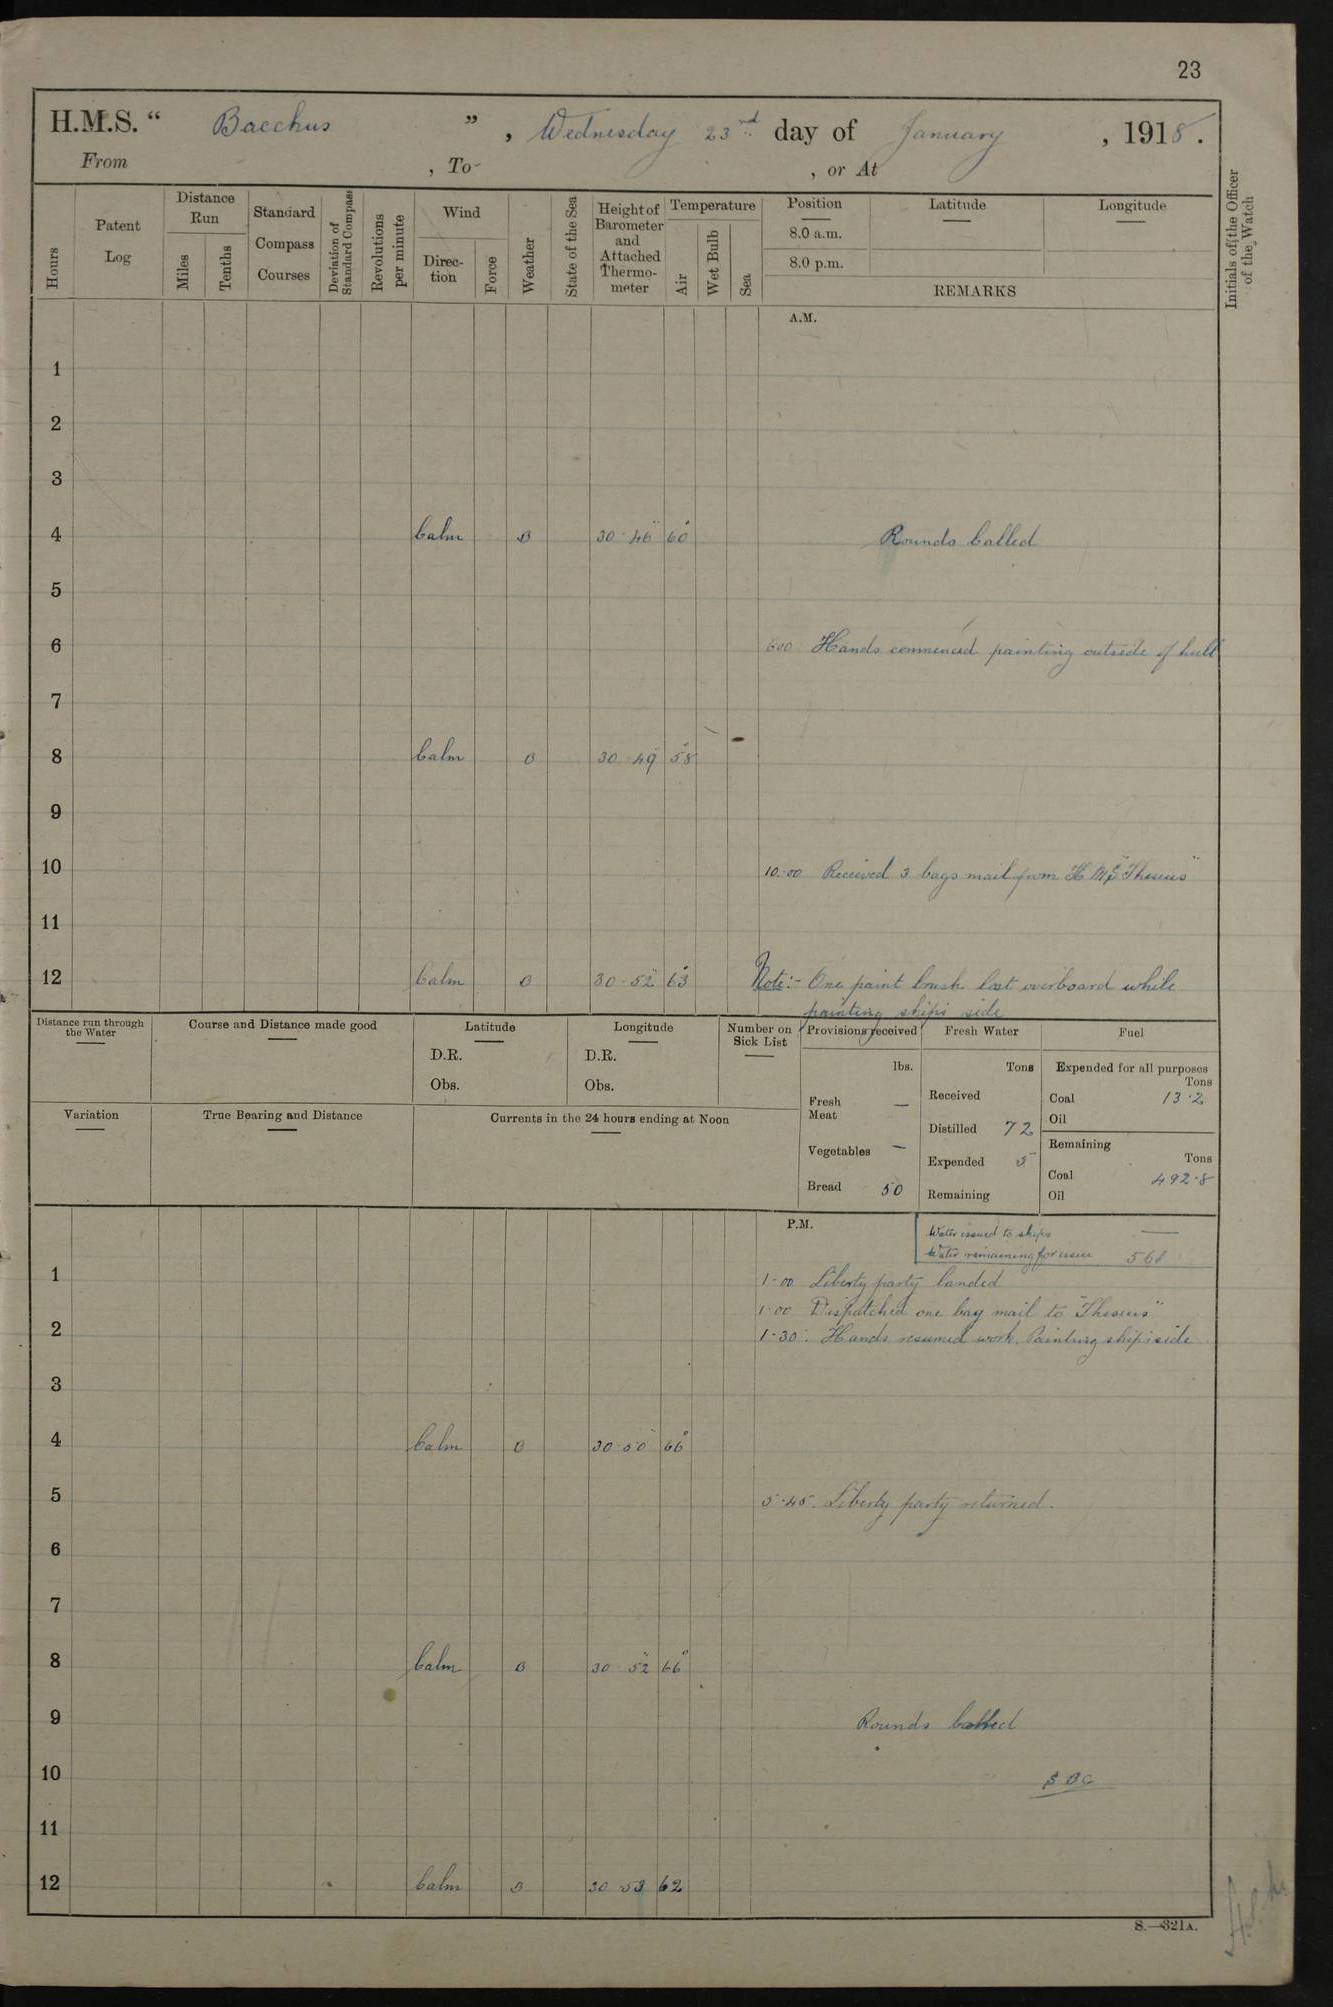 23
H.M.S. “ Bacchus ” , Wednesday 23rd day of January , 1918 .
From , To , or At
Hours
Patent Log
Distance Run
Miles
Tenths
Standard Compass Courses
Deviation of Standard Compass
Revolutions per minute
Wind
Direction
Force
Weather
State of the Sea
Height of Barometer and Attached Thermometer
Temperature
Air
Wet Bulb
Sea
Position Latitude Longitude
8.0 a.m.
8.0 p.m.
REMARKS
Initials of the Officer of the Watch
A.M.
1
2
3
4 Calm B 30.46 60° Rounds Called
5
6 6.00 Hands commenced painting outside of hull
7
8 Calm B 30.49 58°
9
10 10.00 Received 3 bags mail from H.M.S "Theseus"
11
12 Calm B 30.52 63° Note:- One paint brush lost overboard while
painting ships side
Distance run through the Water
Course and Distance made good
Latitude
D.R.
Obs.
Longitude
D.R.
Obs.
Number on Sick List
Variation
True Bearing and Distance
Currents in the 24 hours ending at Noon
Provisions received
lbs.
Fresh Meat —
Vegetables —
Bread 50
Fresh Water
Tons
Received
Distilled 72
Expended 5
Remaining
Fuel
Expended for all purposes
Tons
Coal 13.2
Oil
Remaining
Tons
Coal 492.8
Oil
P.M.
Water issued to ships —
Water remaining for issue
1 1-00 Liberty party landed
1-00 Dispatched one bag mail to "Theseus"
2 1-30. Hands resumed work. Painting ships side
3
4 Calm B 30.50 66°
5 5.45. Liberty party returned.
6
7
8 Calm B 30.52 66°
9 Rounds Called
10
11
12 Calm B 30.53 62
S.—321A.